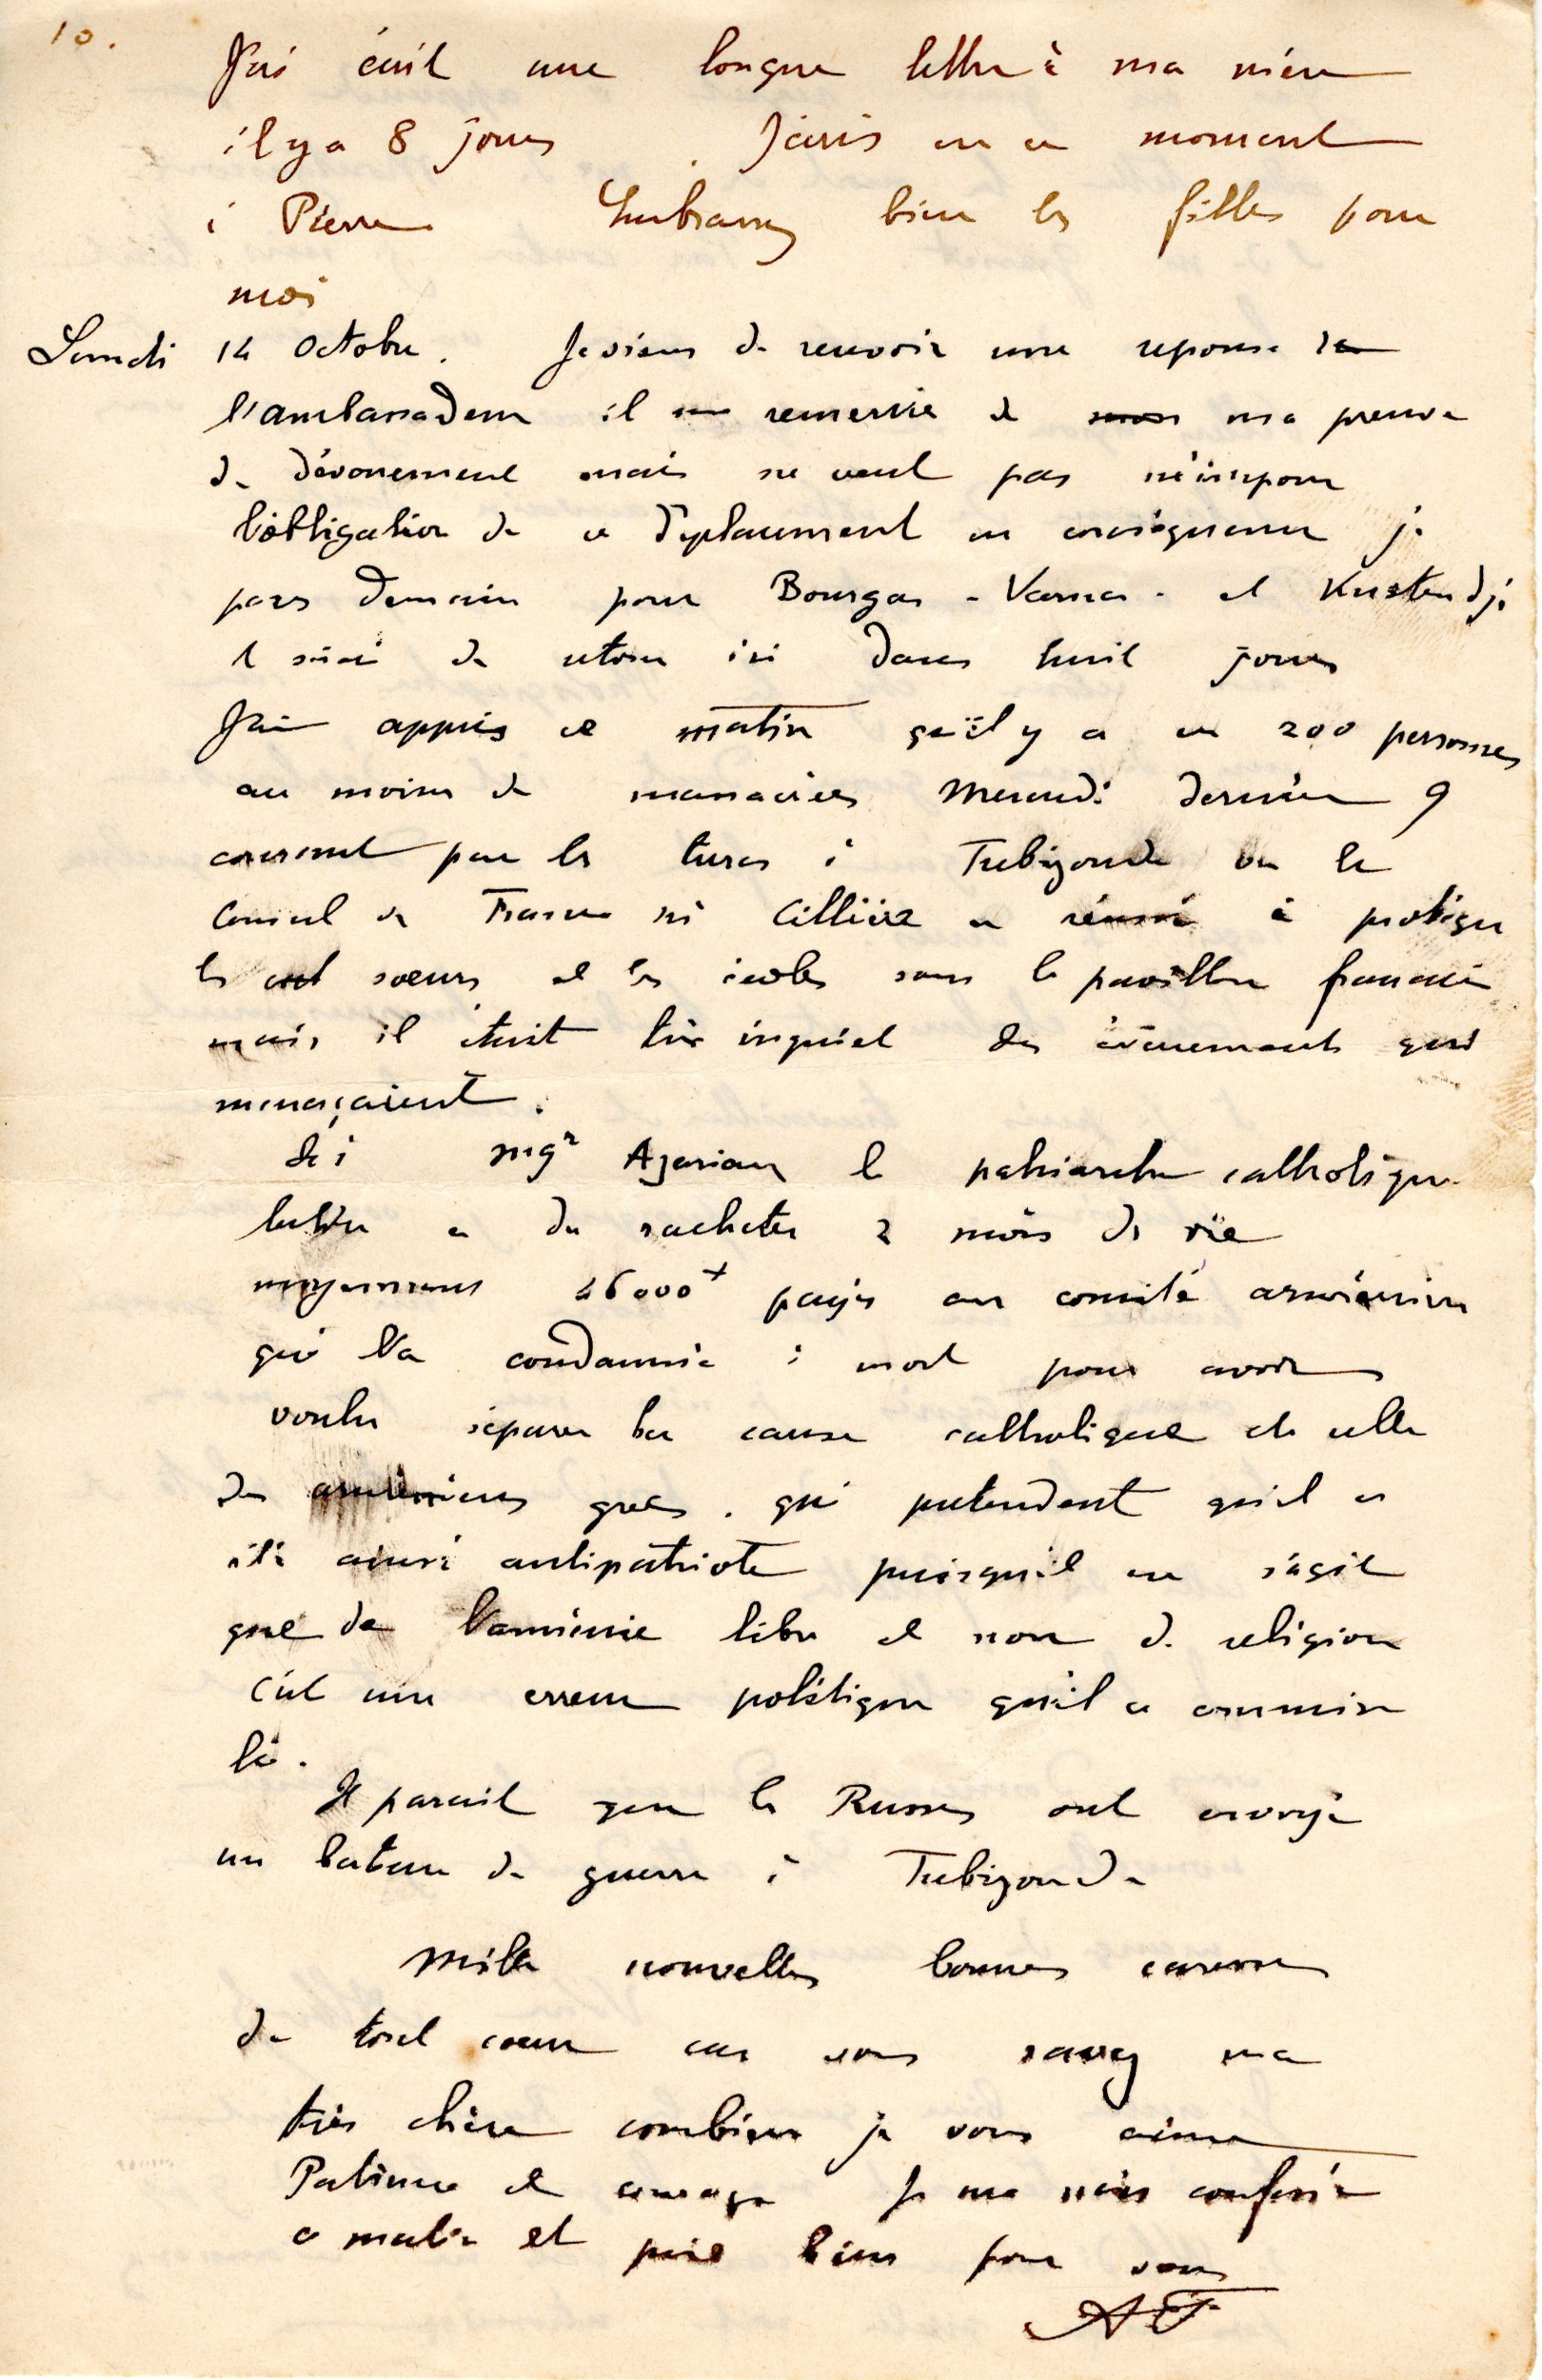 10.
J'ai écrit une longue lettre à ma mère
il y a 8 jours. J'écris en ce moment
à Pierre Embrassez bien les filles pour
moi
Lundi 14 Octobre. Je viens de recevoir une reponse de
l'ambassadeur il me remercie de mon ma preuve
de dévouement mais ne veut pas m'imposer
l'obligation de ce déplacement en conséquence je
pars demain pour Bourgas - Varna - et Kustendji
et serai de retour ici dans huit jours
J'ai appris ce matin qu'il y a eu 200 personnes
au moins de massacrées Mercredi dernier 9
courant par les turcs à Trebizonde ou le
Consul de France Mr Cillière a réussi à protéger
les soeurs et les écoles sous le pavillon francais
mais il était très inquiet des évènements qui
menaçaient.
Ici Mgr Azarian le patriarche catholique
latin a du racheter 2 mois de vie
moyennant 46000 payés au comité arménien
qui l'a condamné à mort pour avoir
voulu séparer la cause catholique de celle
des arméniens grecs. qui pretendent qu'il a
été ainsi antipatriote puisqu'il ne s'agit
que de l'arménie libre et non de religion
C'est une erreur politique qu'il a commise
là.
Il parait que les Russes ont envoyé
un bateau de guerre à Trebizonde
Mille nouvelles bonnes caresses
de tout coeur car vous savez ma
très chère combien je vous aime
Patience et courage Je me suis confessé
ce matin et prié bien pour vous
AF